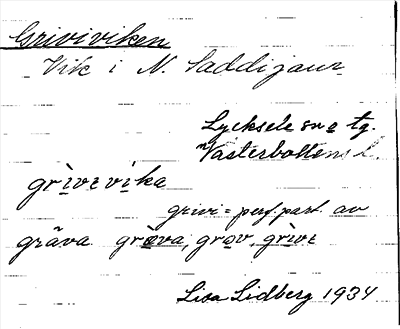 Griviviken
Vik i N. Saddijaur
Lycksele sn o tg.
Västerbottens l.
grivivika
grivi = perf. part. av
gräva grøva, grov, grivi
Lisa Lidberg 1934